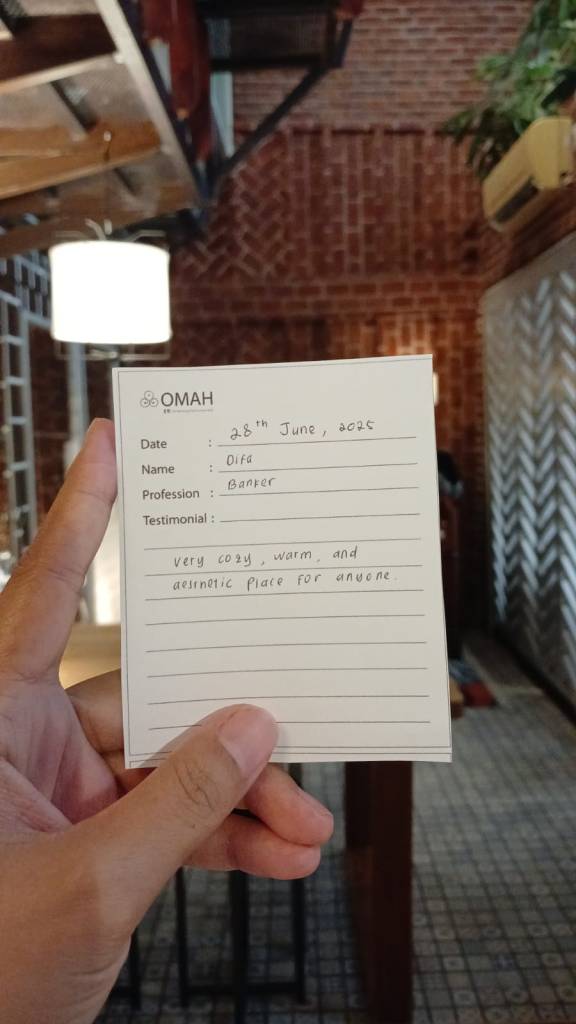 OMAH
Date : 28th June, 2025
Name : Difa
Profession : Banker
Testimonial :
very cozy, warm, and
aesthetic place for anyone.